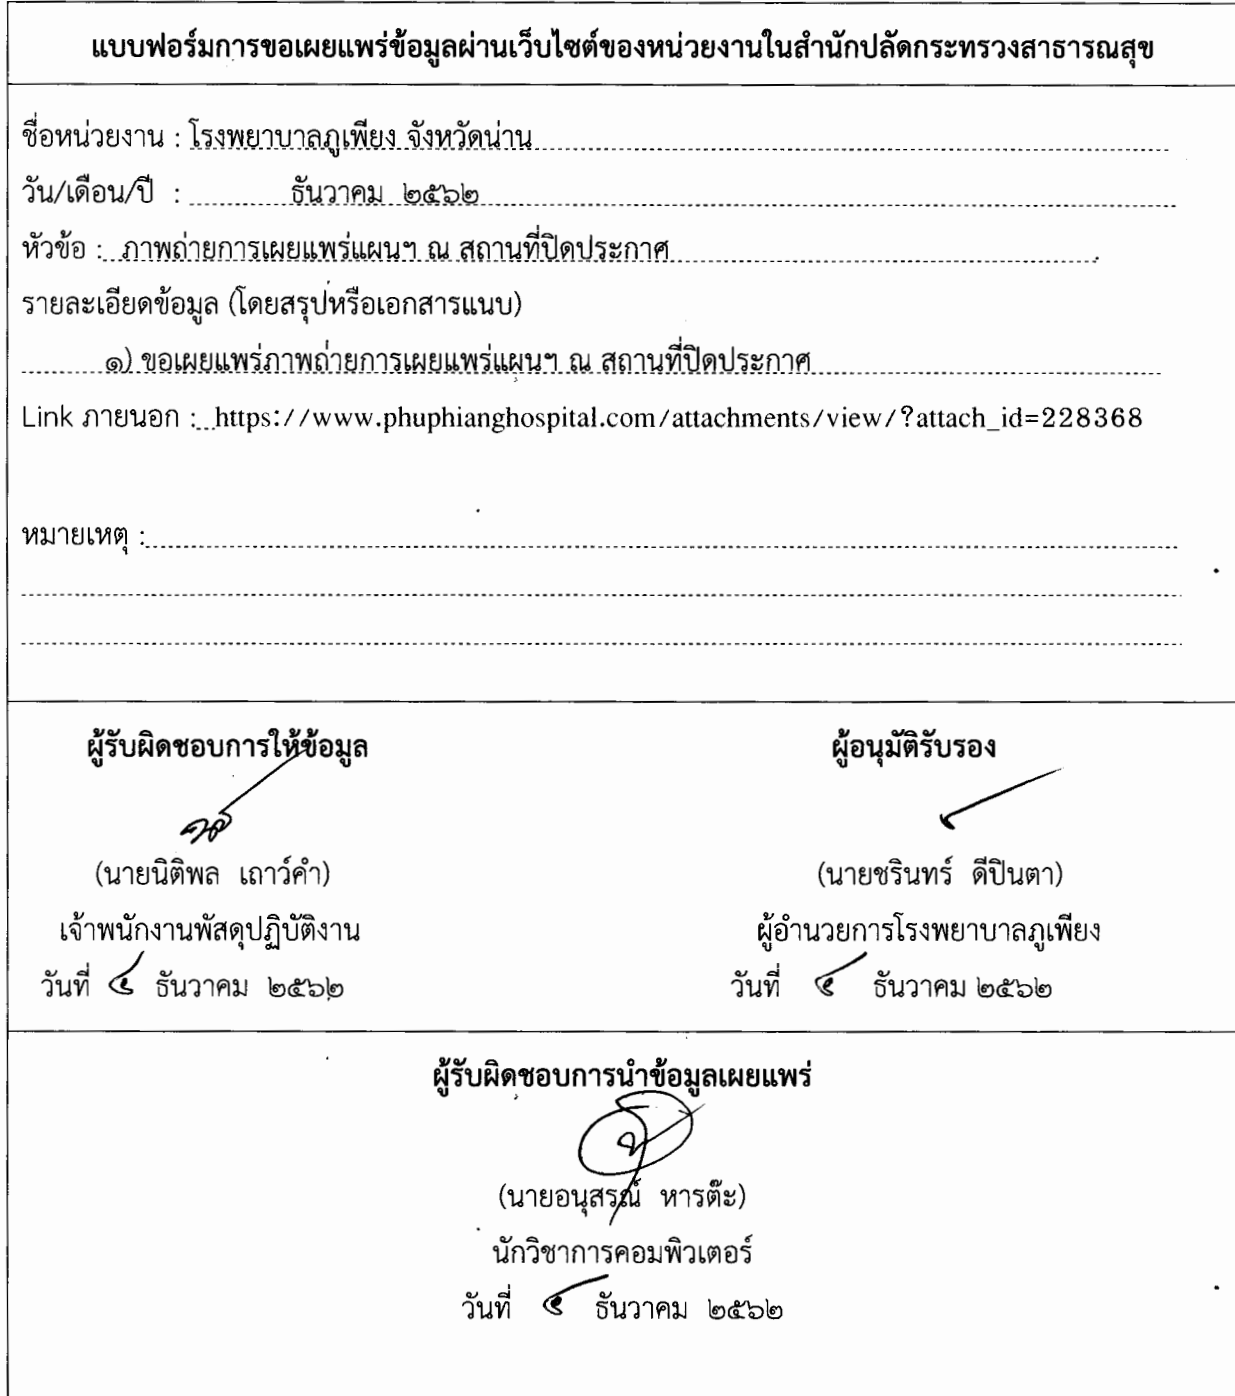 แบบฟอร์มการขอเผยแพร่ข้อมูลผ่านเว็บไซต์ของหน่วยงานในสำนักปลัดกระทรวงสาธารณสุข
ชื่อหน่วยงาน : โรงพยาบาลภูเพียง จังหวัดน่าน
วัน/เดือน/ปี : ธันวาคม ๒๕๖๒
หัวข้อ : ภาพถ่ายการเผยแพร่แผนฯ ณ สถานที่ปิดประกาศ
รายละเอียดข้อมูล (โดยสรุปหรือเอกสารแนบ)
๑) ขอเผยแพร่ภาพถ่ายการเผยแพร่แผนฯ ณ สถานที่ปิดประกาศ
Link ภายนอก : https://www.phuphianghospital.com/attachments/view/?attach_id=228368
หมายเหตุ :
ผู้รับผิดชอบการให้ข้อมูล
(นายนิติพล เถาว์คำ)
เจ้าพนักงานพัสดุปฏิบัติงาน
วันที่ ธันวาคม ๒๕๖๒
ผู้อนุมัติรับรอง
(นายชรินทร์ ดีปินตา)
ผู้อำนวยการโรงพยาบาลภูเพียง
วันที่ ธันวาคม ๒๕๖๒
ผู้รับผิดชอบการนำข้อมูลเผยแพร่
(นายอนุสรณ์ หารต๊ะ)
นักวิชาการคอมพิวเตอร์
วันที่ ธันวาคม ๒๕๖๒